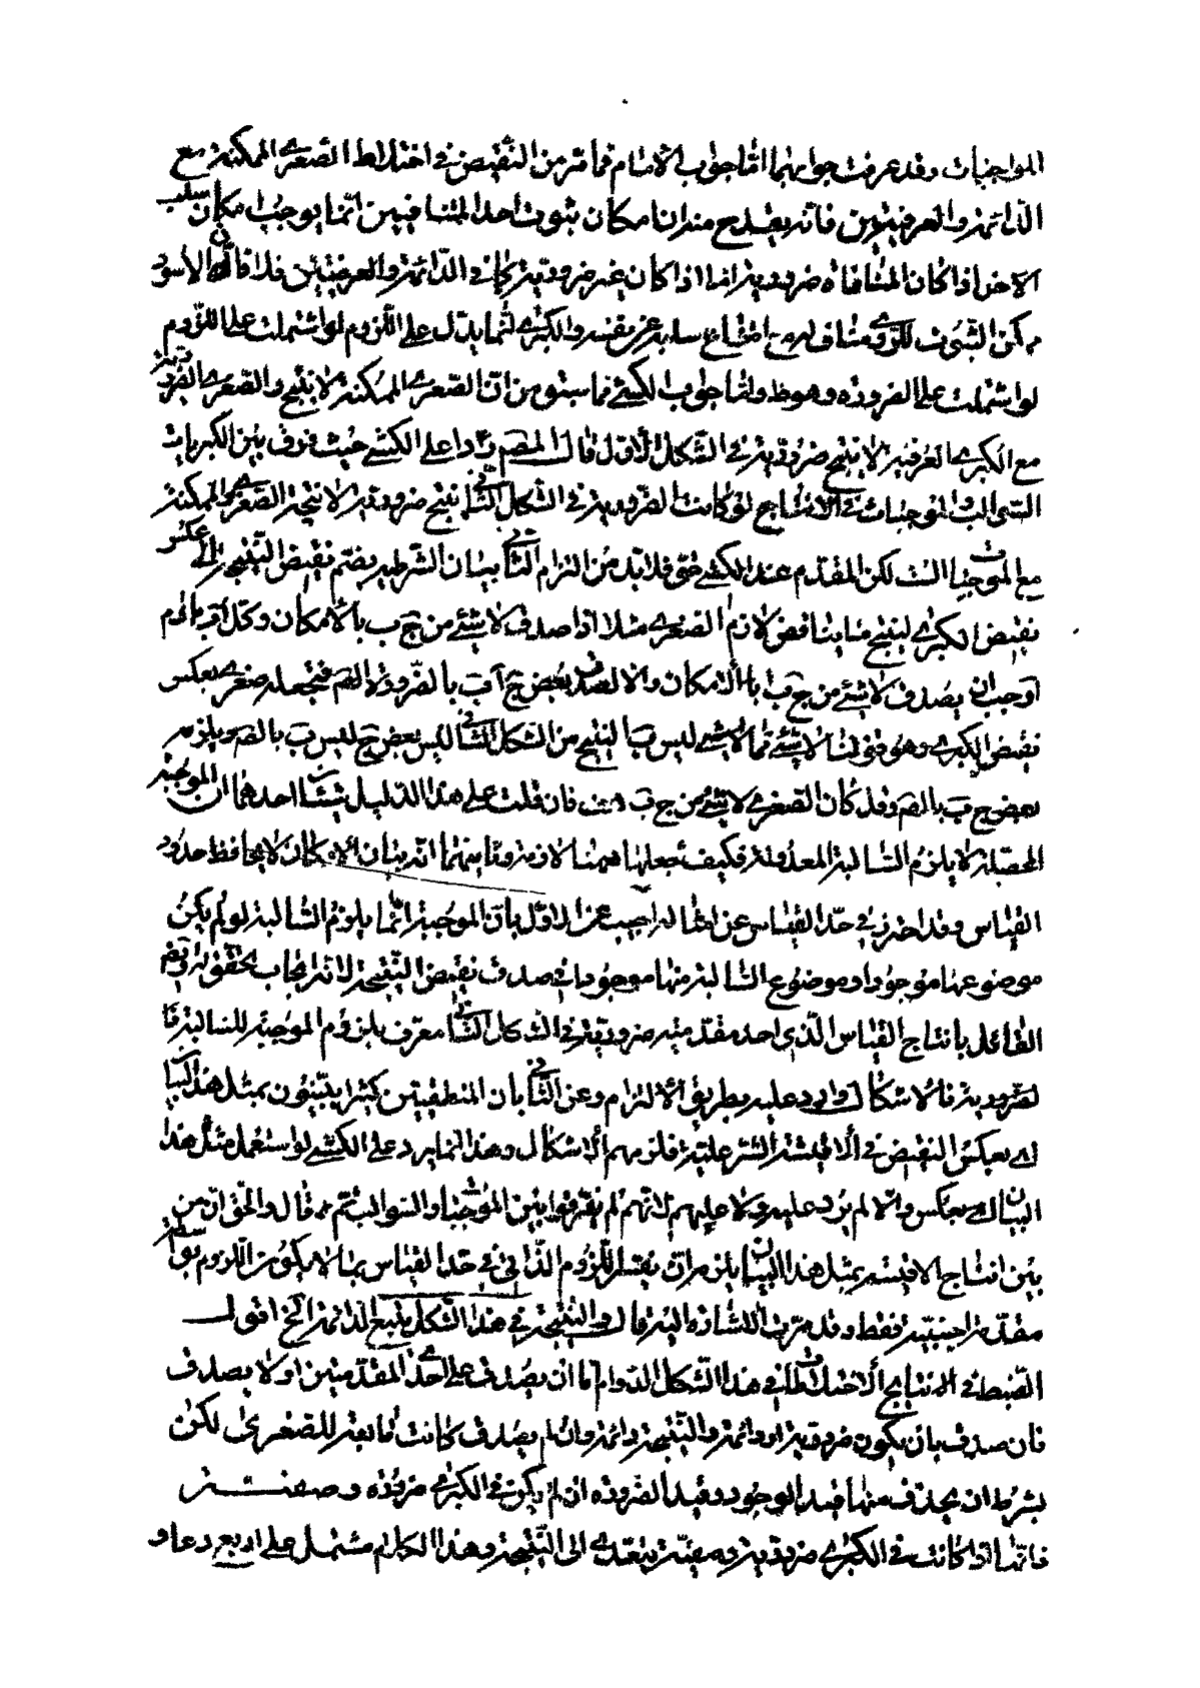 الموجبات وقد عرفت جوابهما اما جواب الامام فما مر من النقيض في اختلاط الصغرى الممكنة مع
الدائمة والعرفيتين فانه يقدح منه ان امكان ثبوت احد المتنافيين انما يوجب امكان سلب
الاخر اذا كان المنافاة ضرورية اما اذا كان غير ضرورية كما في الدائمة والعرفيتين فلا فان الاسود
ممكن الثبوت للرومي مناف له مع امتناع سلبه عن نفسه والكبرى انما يدل على اللزوم لو اشتملت على اللزوم
لو اشتملت على الضرورة وهو ظ واما جواب الكشي فما سبق من ان الصغرى الممكنة لا ينتج والصغرى الضرورية
مع الكبرى العرفية لا ينتج ضرورية في الشكل الاول قال المصم ردا على الكشي حيث فرق بين الكبريات
السوالب والموجبات في الانتاج لو كانت الضرورية في الشكل الثاني ينتج ضرورية لانتجت الصغرى الممكنة
مع الموجبات السالبة لكن المقدم عند الكشي حق فلا بد من التزام التالي بيان الشرطية بضم نقيض النتيجة الى عكس
نقيض الكبرى لينتج ما يناقض لازم الصغرى مثلا اذا صدق لا شيء من ج ب بالامكان وكل ا ب دائما
وجب ان يصدق لا شيء من ج ا بالامكان والا لصدق بعض ج ا بالضرورة فنجعله صغرى بعكس
نقيض الكبرى وهو قولنا لا شيء مما ليس ب ا لينتج من الشكل الثاني ليس بعض ج ليس ب بالضم ويلزمه
بعض ج ب بالضم وقد كان الصغرى لا شيء من ج ب هف فان قلت على هذا الدليل شيئان احدهما ان الموجبة
المحصلة لا يلزم السالبة المعدولة فكيف جعلتها ههنا لازمة وثانيهما انه بيان لا يحافظ حدود
القياس وقد احترز في حد القياس عن امثاله اجيب عن الاول بان الموجبة انما يلزم السالبة لو لم يكن
موضوعها موجودا وموضوع السالبة منها موجود في صدق نقيض النتيجة لانه ايجاب تحقق له وايضم
القائل بانتاج القياس الذي احد مقدمتيه ضرورية في الشكل الثاني معترف بلزوم الموجبة للسالبة
الضرورية فالاشكال وارد عليه بطريق الالتزام وعن الثاني بان المنطقيين كثيرا يبينون بمثل هذا البيان
اي بعكس النقيض في الاقيسة الشرطية فلزمهم الاشكال وهذا انما يرد على الكشي لو استعمل مثل هذا
البيان اي بعكس والا لم يرد عليه ولا عليهم لانهم لم يفرقوا بين الموجبات والسوالب ثم قال والحق ان من
بين انتاج الاقيسة بمثل هذا البيان يلزمه ان يفسر اللزوم الذاتي في حد القياس بما لا يكون اللزوم بواسطة
مقدمة اجنبية فقط وقد مرت الاشارة اليه قال والنتيجة في هذا الشكل يتبع الدائمة الخ اقول
الضبط في الانتاج الاختلاطات في هذا الشكل الدوام اما ان يصدق على احدى المقدمتين او لا يصدق
فان صدق بان يكون ضرورية او دائمة والنتيجة دائمة وان لم يصدق كانت تابعة للصغرى لكن
بشرط ان يحذف منها قيد الوجود وقيد الضرورة ان لم يكن في الكبرى ضرورة وصفيته
فانها اذا كانت في الكبرى ضرورية وصفية يتعدى الى النتيجة وهذا الكلام مشتمل على اربع دعاو